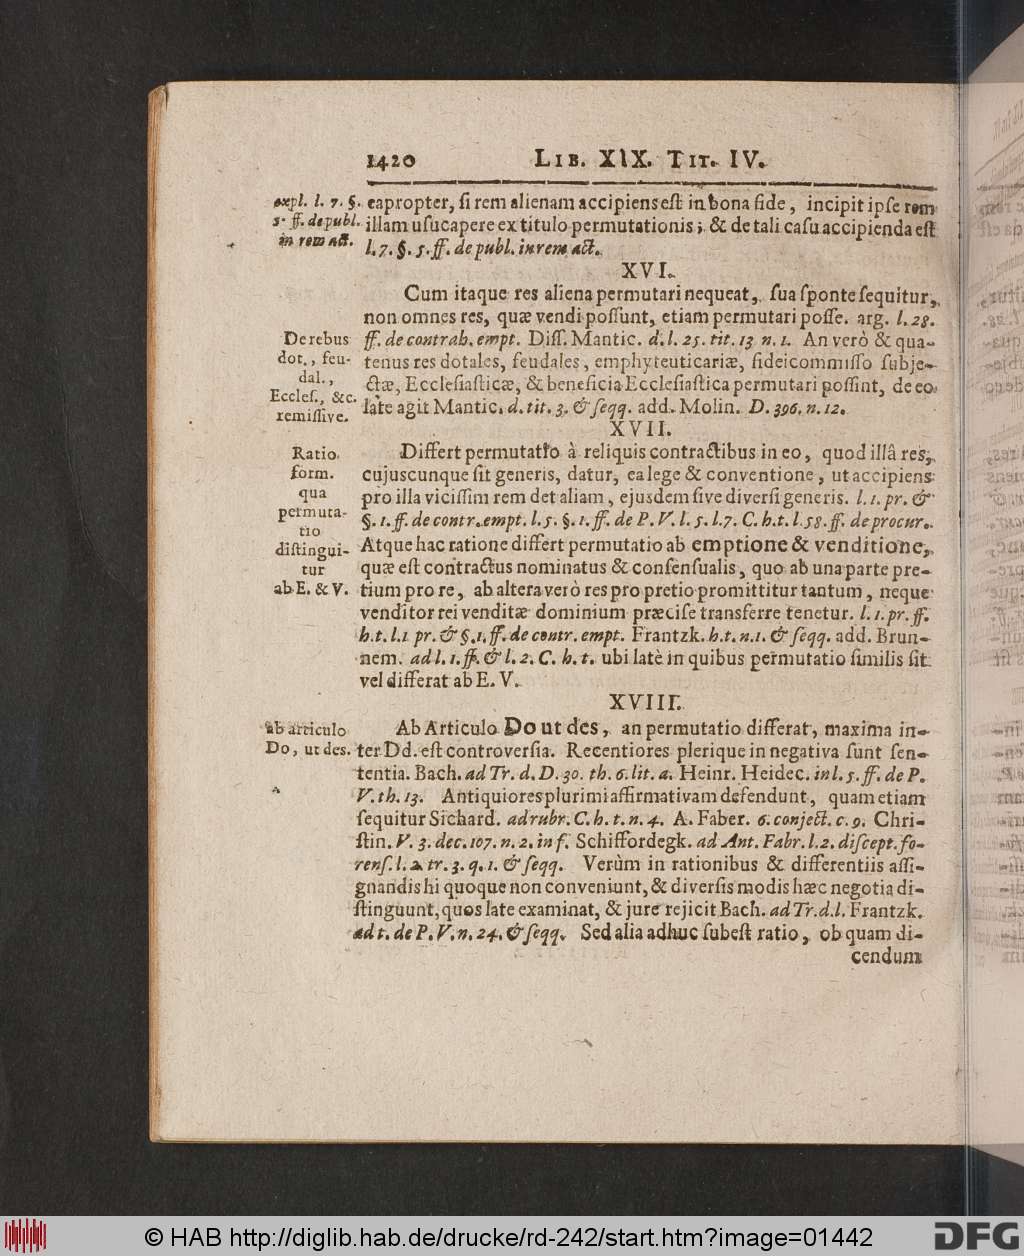 1420 LIB. XIX. TIT. IV.
expl. l. 7. §.
5. ff. de publ.
in rem act.
eapropter, ſi rem alienam accipiens eſt in bona fide, incipit ipſe rem
illam uſucapere ex titulo permutationis; & de tali caſu accipienda eſt
l. 7. §. 5. ff. de publ. in rem act.
XVI.
Cum itaque res aliena permutari nequeat, ſua ſponte ſequitur,
non omnes res, quæ vendi poſſunt, etiam permutari poſſe. arg. l. 28.
De rebus
dot., feu-
dal.,
Eccleſ., &c.
remiſſive.
ff. de contrah. empt. Diſſ. Mantic. d. l. 25. tit. 13 n. 1. An verò & qua-
tenus res dotales, feudales, emphyteuticariæ, fideicommiſſo ſubje-
ctæ, Eccleſiaſticæ, & beneficia Eccleſiaſtica permutari poſſint, de eo
late agit Mantic. d. tit. 3. & ſeqq. add. Molin. D. 396. n. 12.
XVII.
Ratio
form.
qua
permuta-
tio
diſtingui-
tur
ab E. & V.
Differt permutatio à reliquis contractibus in eo, quod illâ res,
cujuscunque ſit generis, datur, ea lege & conventione, ut accipiens
pro illa viciſſim rem det aliam, ejusdem ſive diverſi generis. l. 1. pr. &
§. 1. ff. de contr. empt. l. 5. §. 1. ff. de P. V. l. 5. l. 7. C. h. t. l. 58. ff. de procur.
Atque hac ratione differt permutatio ab emptione & venditione,
quæ eſt contractus nominatus & conſenſualis, quo ab una parte pre-
tium pro re, ab altera verò res pro pretio promittitur tantum, neque
venditor rei venditæ dominium præciſe transferre tenetur. l. 1. pr. ff.
h. t. l. 1 pr. & §. 1. ff. de contr. empt. Frantzk. h. t. n. 1. & ſeqq. add. Brun-
nem. ad l. 1. ff. & l. 2. C. h. t. ubi latè in quibus permutatio ſimilis ſit
vel differat ab E. V.
XVIII.
ab articulo
Do, ut des.
Ab Articulo Do ut des, an permutatio differat, maxima in-
ter Dd. eſt controverſia. Recentiores plerique in negativa ſunt ſen-
tentia. Bach. ad Tr. d. D. 30. th. 6. lit. a. Heinr. Heidec. in l. 5. ff. de P.
V. th. 13. Antiquiores plurimi affirmativam defendunt, quam etiam
ſequitur Sichard. ad rubr. C. h. t. n. 4. A. Faber. 6. conject. c. 9. Chri-
ſtin. V. 3. dec. 107. n. 2. in f. Schiffordegk. ad Ant. Fabr. l. 2. diſcept. fo-
renſ. l. 2. tr. 3. q. 1. & ſeqq. Verùm in rationibus & differentiis aſſi-
gnandis hi quoque non conveniunt, & diverſis modis hæc negotia di-
ſtinguunt, quos late examinat, & jure rejicit Bach. ad Tr. d. l. Frantzk.
ad t. de P. V. n. 24. & ſeqq. Sed alia adhuc ſubeſt ratio, ob quam di-
cendum
© HAB http://diglib.hab.de/drucke/rd-242/start.htm?image=01442
DFG